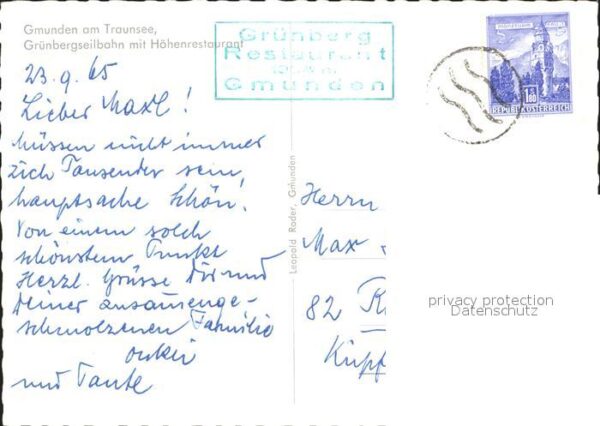 Gmunden am Traunsee,
Grünbergseilbahn mit Höhenrestaurant
23.9.65
Lieber Maxl!
Müssen nicht immer
zich Tausender sein,
hauptsache schön!
Von einem solch
schönstem Punkt
Herzl. Grüsse Dir und
Deiner zusammenge-
schmolzenen Familie
onkel
und Tante
Grünberg
Restaurant
Gmunden
Leopold Rader, Gmunden
1.80
REPUBLIK ÖSTERREICH
Herrn
Max
82
Kupf
privacy protection
Datenschutz